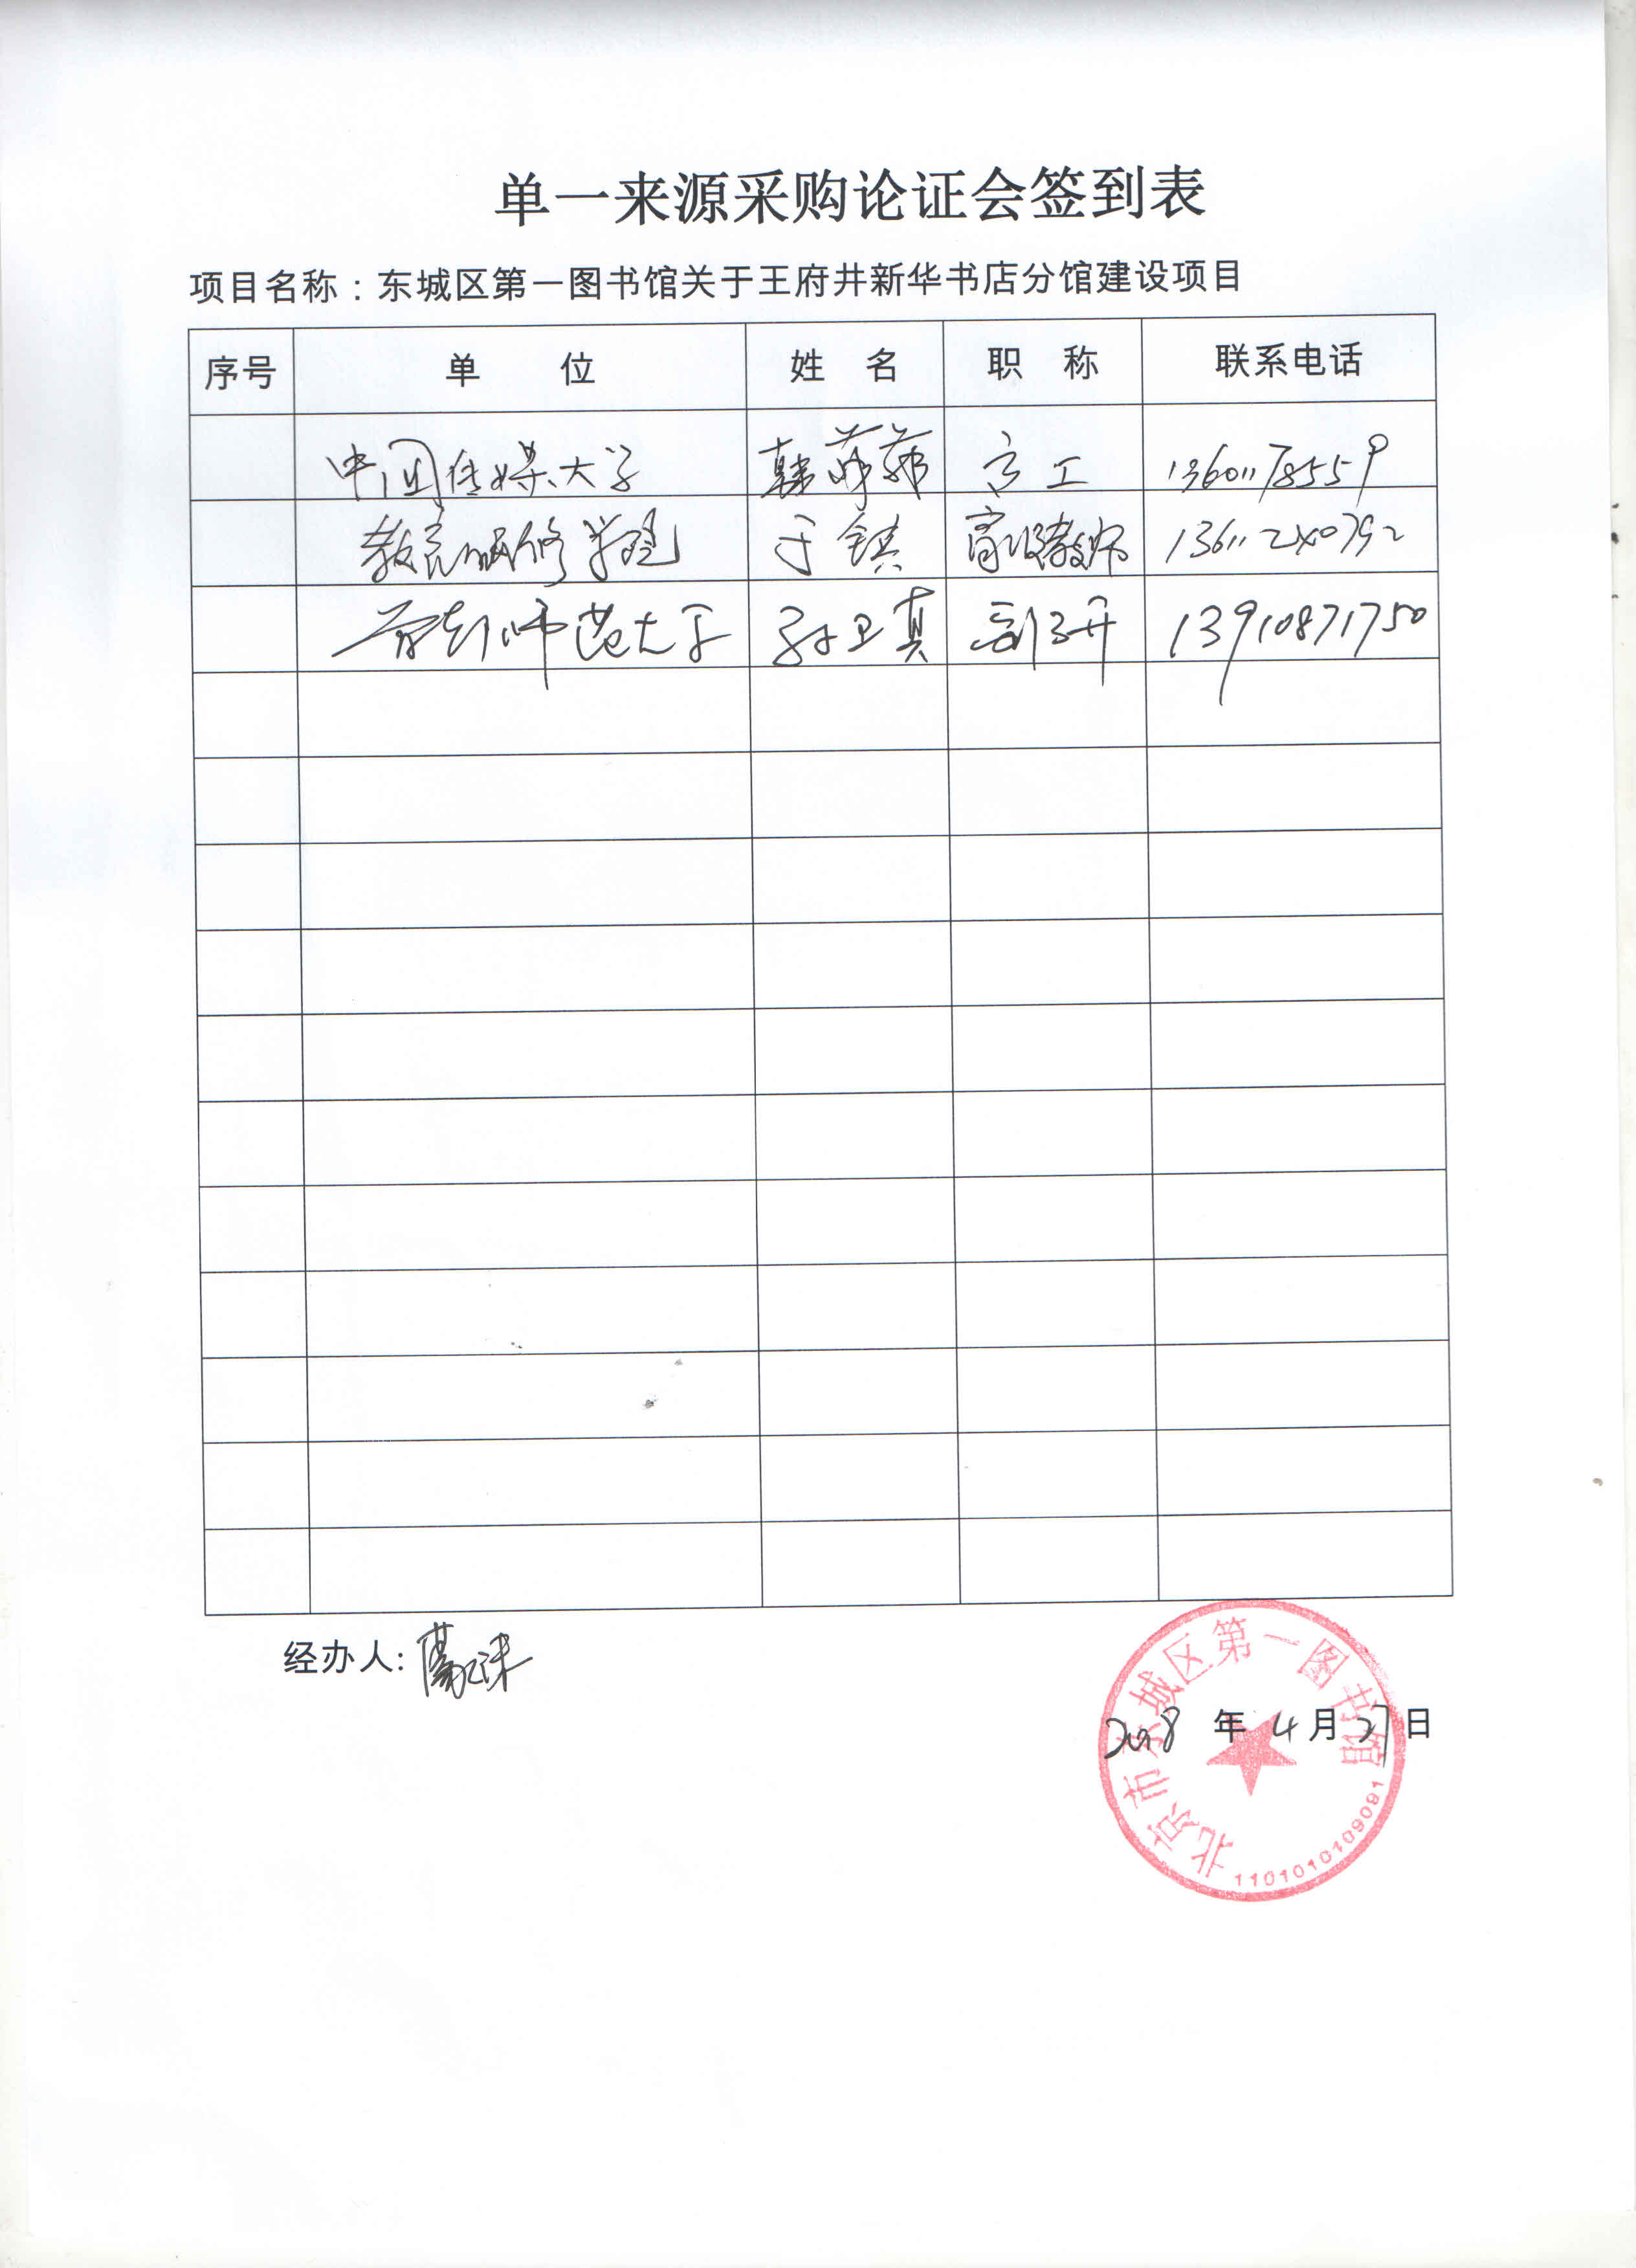 单一来源采购论证会签到表
项目名称：东城区第一图书馆关于王府井新华书店分馆建设项目
序号 单 位 姓 名 职 称 联系电话
中国传媒大学 韩茀茀 高工 13601178559
教育研修学院 于镇 高级教师 13611240792
首都师范大学 孙卫真 副研 13910871750
经办人:
北京市东城区第一图书馆
2018 年 4 月 27 日
1101010109091